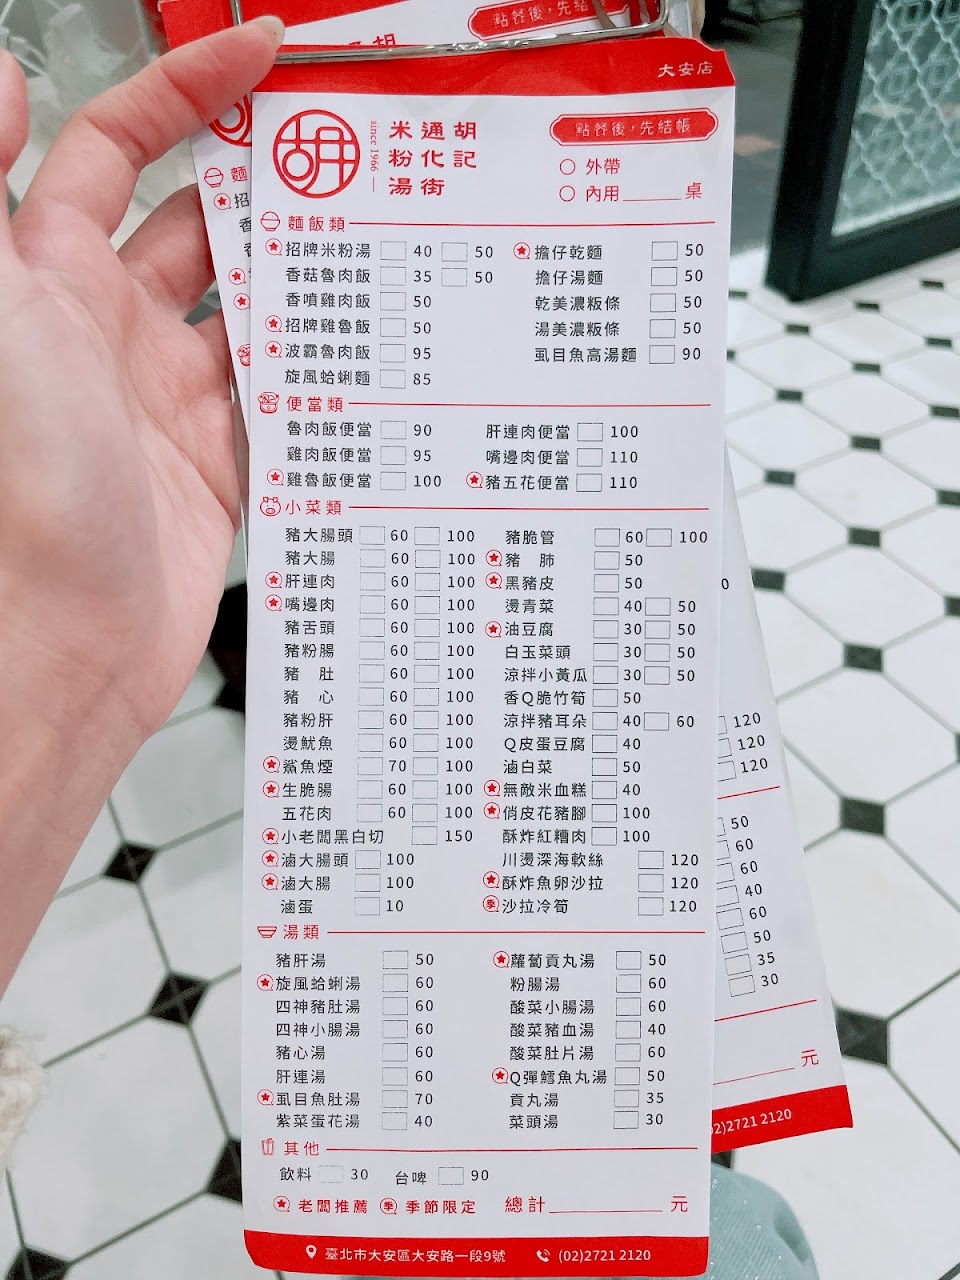 點餐後，先結
大安店
胡記
通化街
米粉湯
since 1966
胡
點餐後，先結帳
外帶
內用 桌
麵飯類
招牌米粉湯 40 50
香菇魯肉飯 35 50
香噴雞肉飯 50
招牌雞魯飯 50
波霸魯肉飯 95
旋風蛤蜊麵 85
擔仔乾麵 50
擔仔湯麵 50
乾美濃粄條 50
湯美濃粄條 50
虱目魚高湯麵 90
便當類
魯肉飯便當 90
雞肉飯便當 95
雞魯飯便當 100
肝連肉便當 100
嘴邊肉便當 110
豬五花便當 110
小菜類
豬大腸頭 60 100
豬大腸 60 100
肝連肉 60 100
嘴邊肉 60 100
豬舌頭 60 100
豬粉腸 60 100
豬 肚 60 100
豬 心 60 100
豬粉肝 60 100
燙魷魚 60 100
鯊魚煙 70 100
生脆腸 60 100
五花肉 60 100
小老闆黑白切 150
滷大腸頭 100
滷大腸 100
滷蛋 10
豬脆管 60 100
豬 肺 50
黑豬皮 50
燙青菜 40 50
油豆腐 30 50
白玉菜頭 30 50
涼拌小黃瓜 30 50
香Q脆竹筍 50
涼拌豬耳朵 40 60
Q皮蛋豆腐 40
滷白菜 50
無敵米血糕 40
俏皮花豬腳 100
酥炸紅糟肉 100
川燙深海軟絲 120
酥炸魚卵沙拉 120
季 沙拉冷筍 120
湯類
豬肝湯 50
旋風蛤蜊湯 60
四神豬肚湯 60
四神小腸湯 60
豬心湯 60
肝連湯 60
虱目魚肚湯 70
紫菜蛋花湯 40
蘿蔔貢丸湯 50
粉腸湯 60
酸菜小腸湯 60
酸菜豬血湯 40
酸菜肚片湯 60
Q彈鱈魚丸湯 50
貢丸湯 35
菜頭湯 30
其他
飲料 30 台啤 90
老闆推薦 季 季節限定 總計 元
臺北市大安區大安路一段9號 (02)2721 2120
麵
招
香
120
120
120
50
60
60
40
60
50
35
30
元
02)2721 2120